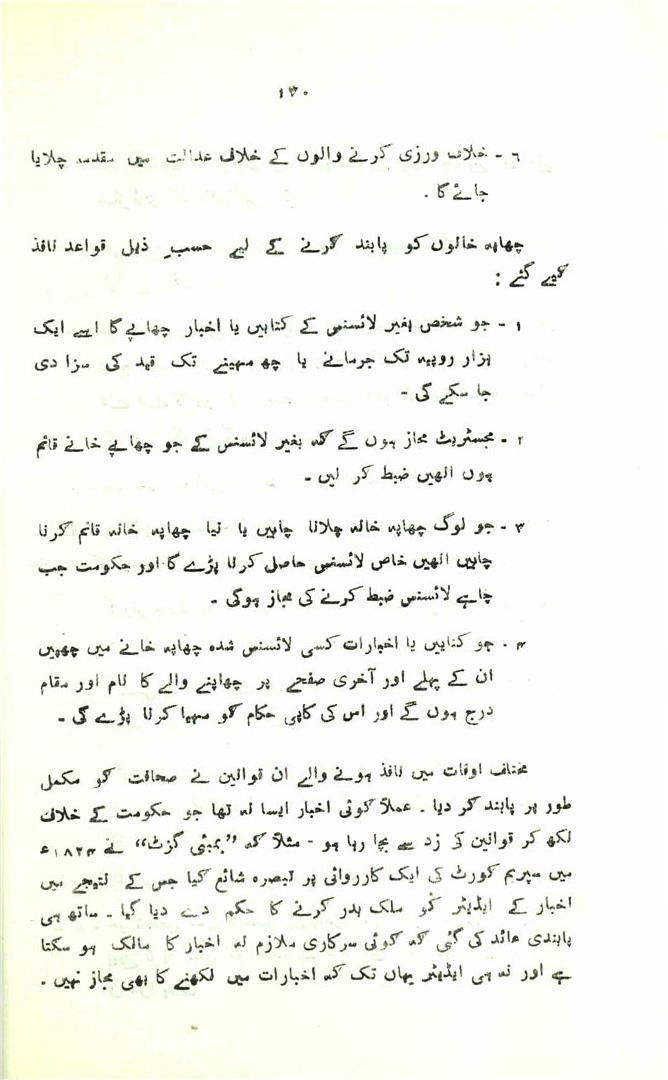 ۱۳۰
۶ - خلاف ورزی کرنے والوں کے خلاف عدالت میں مقدمہ چلایا
جائے گا ۔
چھاپہ خانوں کو پابند کرنے کے لیے حسبِ ذیل قواعد نافذ
کیے گئے :
۱ - جو شخص بغیر لائسنس کے کتابیں یا اخبار چھاپے گا اسے ایک
ہزار روپیہ تک جرمانے یا چھ مہینے تک قید کی سزا دی
جا سکے گی -
۲ - مجسٹریٹ مجاز ہوں گے کہ بغیر لائسنس کے جو چھاپے خانے قائم
ہوں انھیں ضبط کر لیں -
۳ - جو لوگ چھاپہ خانہ چلانا چاہیں یا نیا چھاپہ خانہ قائم کرنا
چاہیں انھیں خاص لائسنس حاصل کرنا پڑے گا اور حکومت جب
چاہے لائسنس ضبط کرنے کی مجاز ہوگی -
۴ - جو کتابیں یا اخبارات کسی لائسنس شدہ چھاپہ خانے میں چھپیں
ان کے پہلے اور آخری صفحے پر چھاپنے والے کا نام اور مقام
درج ہوں گے اور اس کی کاپی حکام کو مہیا کرنا پڑے گی -
مختلف اوقات میں نافذ ہونے والے ان قوانین نے صحافت کو مکمل
طور پر پابند کر دیا ۔ عملاً کوئی اخبار ایسا نہ تھا جو حکومت کے خلاف
لکھ کر قوانین کی زد سے بچا رہا ہو - مثلاً کہ ”بمبئی گزٹ“ نے ۱۸۲۴ء
میں سپریم کورٹ کی ایک کارروائی پر تبصرہ شائع کیا جس کے نتیجے میں
اخبار کے ایڈیٹر کو ملک بدر کرنے کا حکم دے دیا گیا ۔ ساتھ ہی
پابندی عائد کی گئی کہ کوئی سرکاری ملازم نہ اخبار کا مالک ہو سکتا
ہے اور نہ ہی ایڈیٹر یہاں تک کہ اخبارات میں لکھنے کا بھی مجاز نہیں ۔